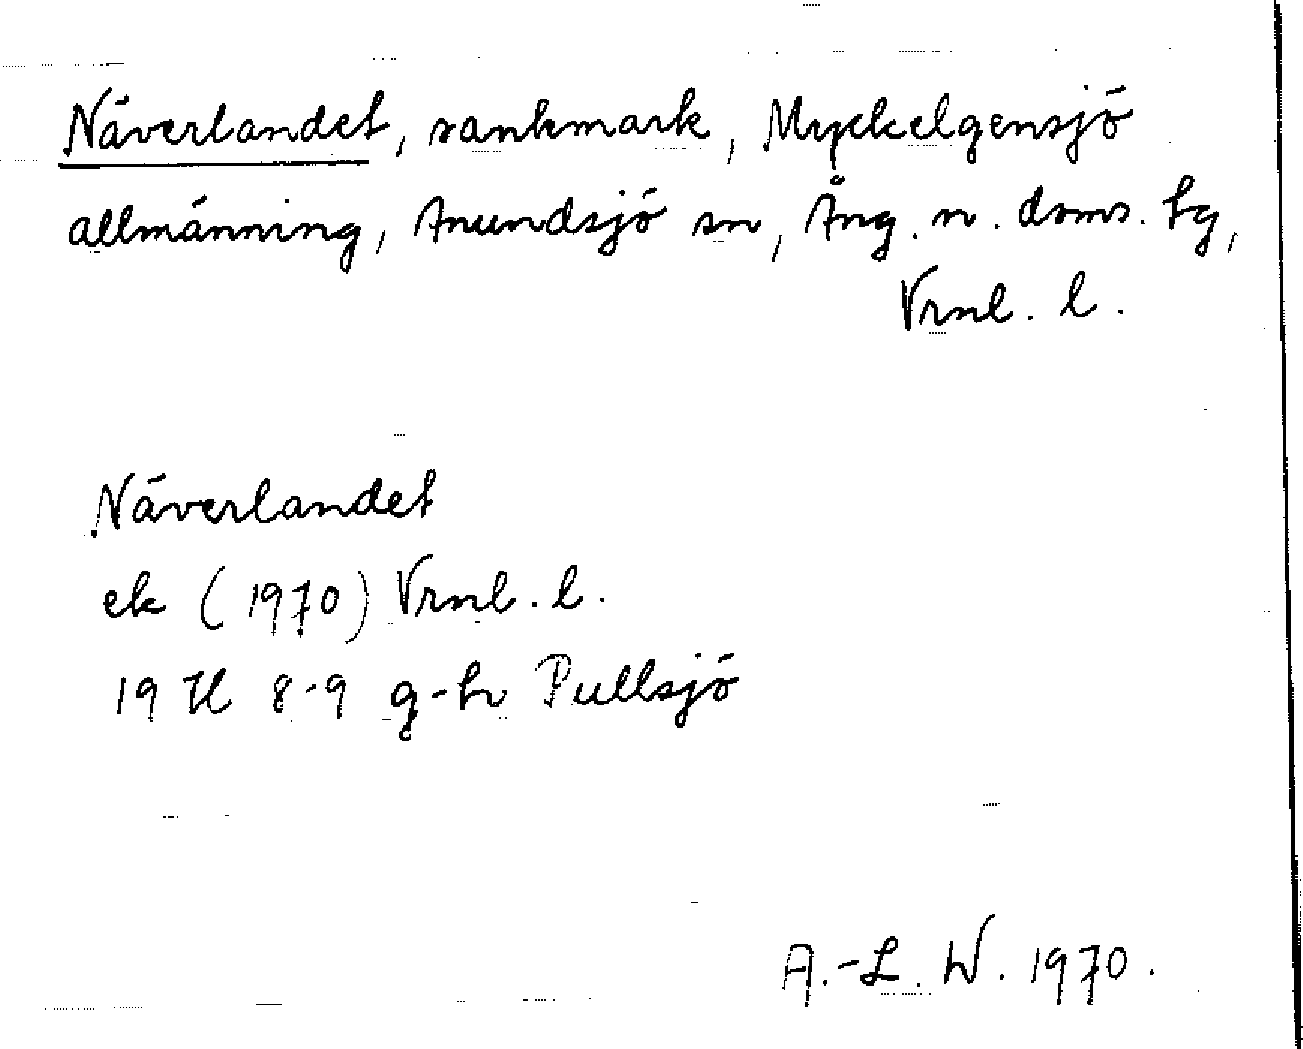 Näverlandet, sankmark, Myckelgensjö
allmänning, Anundsjö sn, Ång. n. doms. tg,
Vrnl. l.
Näverlandet
ek (1970) Vrnl. l.
19 H 8-9 g-h Pullsjö
A.-L. W. 1970.